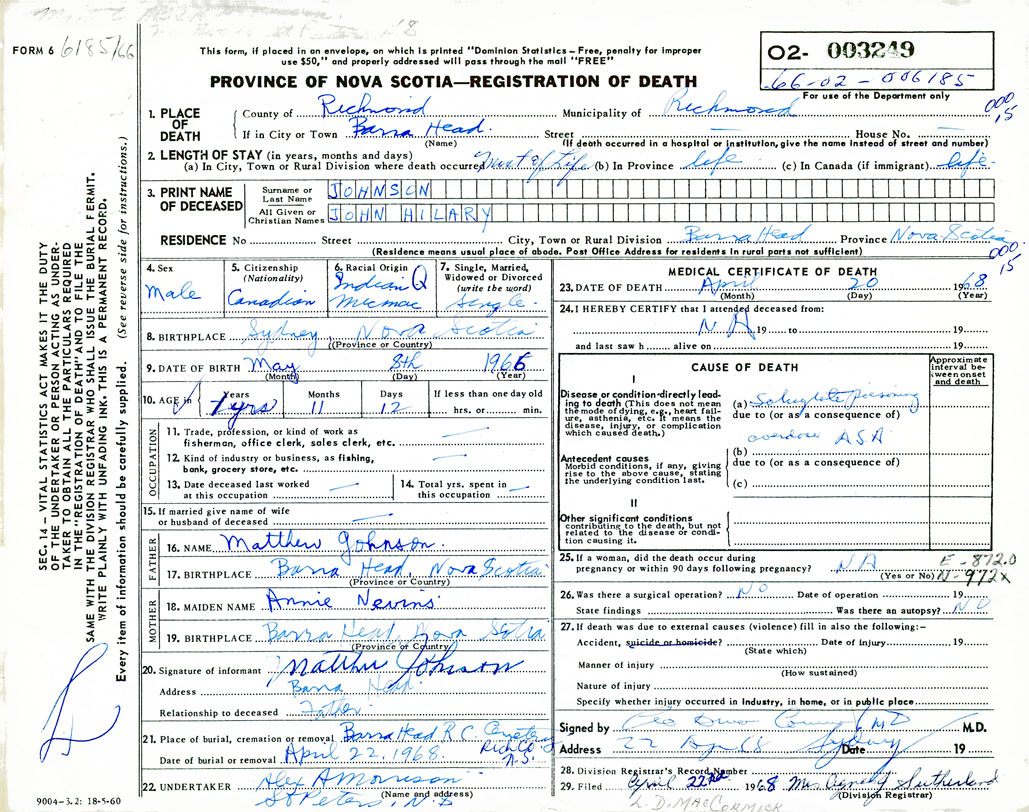 FORM 6 6185/66
This form, if placed in an envelope, on which is printed "Dominion Statistics – Free, penalty for improper
use $50," and properly addressed will pass through the mail "FREE"
O2- 003249
66-02-006185
For use of the Department only
PROVINCE OF NOVA SCOTIA—REGISTRATION OF DEATH
000
15
1. PLACE OF DEATH
County of Richmond Municipality of Richmond
If in City or Town Barra Head. Street — House No. —
(Name) (If death occurred in a hospital or institution, give the name instead of street and number)
2. LENGTH OF STAY (in years, months and days)
(a) In City, Town or Rural Division where death occurred Most of Life (b) In Province life (c) In Canada (if immigrant) life
3. PRINT NAME OF DECEASED
Surname or Last Name JOHNSON
All Given or Christian Names JOHN HILARY
RESIDENCE No. Street City, Town or Rural Division Barra Head Province Nova Scotia
(Residence means usual place of abode. Post Office Address for residents in rural parts not sufficient)
000
15
4. Sex
Male
5. Citizenship (Nationality)
Canadian
6. Racial Origin
Indian
Micmac
7. Single, Married, Widowed or Divorced (write the word)
Single
8. BIRTHPLACE Sydney, Nova Scotia
(Province or Country)
9. DATE OF BIRTH May 8th 1966
(Month) (Day) (Year)
10. AGE in Years Months Days If less than one day old
1 yrs 11 12 hrs. or min.
OCCUPATION
11. Trade, profession, or kind of work as fisherman, office clerk, sales clerk, etc. —
12. Kind of industry or business, as fishing, bank, grocery store, etc. —
13. Date deceased last worked at this occupation —
14. Total yrs. spent in this occupation —
15. If married give name of wife or husband of deceased —
FATHER
16. NAME Matthew Johnson.
17. BIRTHPLACE Barra Head, Nova Scotia
(Province or Country)
MOTHER
18. MAIDEN NAME Annie Nevins
19. BIRTHPLACE Barra Head, Nova Scotia
(Province or Country)
20. Signature of informant Matthew Johnson
Address Barra Head
Relationship to deceased Father
21. Place of burial, cremation or removal Barra Head R C Cemetery
Rich Co N.S.
Date of burial or removal April 22, 1968.
22. UNDERTAKER Alex A Morrison
(Name and address)
St Peters, N.S
9004-3.2: 18-5-60
MEDICAL CERTIFICATE OF DEATH
23. DATE OF DEATH April 20 1968
(Month) (Day) (Year)
24. I HEREBY CERTIFY that I attended deceased from
NA 19 to 19
and last saw h alive on 19
CAUSE OF DEATH
Approximate interval between onset and death
I
Disease or condition directly leading to death (This does not mean the mode of dying, e.g., heart failure, asthenia, etc. It means the disease, injury, or complication which caused death.)
(a) Salicylate poisoning
due to (or as a consequence of)
overdose ASA
Antecedent causes
Morbid conditions, if any, giving rise to the above cause, stating the underlying condition last.
(b)
due to (or as a consequence of)
(c)
II
Other significant conditions
contributing to the death, but not related to the disease or condition causing it.
25. If a woman, did the death occur during
pregnancy or within 90 days following pregnancy? NA
(Yes or No)
E-872.0
N-972x
26. Was there a surgical operation? NO Date of operation 19
State findings Was there an autopsy? NO
27. If death was due to external causes (violence) fill in also the following:–
Accident, suicide or homicide? Date of injury 19
(State which)
Manner of injury
(How sustained)
Nature of injury
Specify whether injury occurred in Industry, in home, or in public place
Signed by MD M.D.
Address 22 Apr 68 Sydney Date 19
28. Division Registrar's Record Number
29. Filed April 22nd 1968 Mrs Agnes Sutherland
(Division Registrar)
L. D. MACCORMICK
SEC. 14 – VITAL STATISTICS ACT MAKES IT THE DUTY
OF THE UNDERTAKER OR PERSON ACTING AS UNDER-
TAKER TO OBTAIN ALL THE PARTICULARS REQUIRED
IN THE "REGISTRATION OF DEATH" AND TO FILE THE
SAME WITH THE DIVISION REGISTRAR WHO SHALL ISSUE THE BURIAL PERMIT.
WRITE PLAINLY WITH UNFADING INK. THIS IS A PERMANENT RECORD.
Every item of information should be carefully supplied. (See reverse side for instructions.)